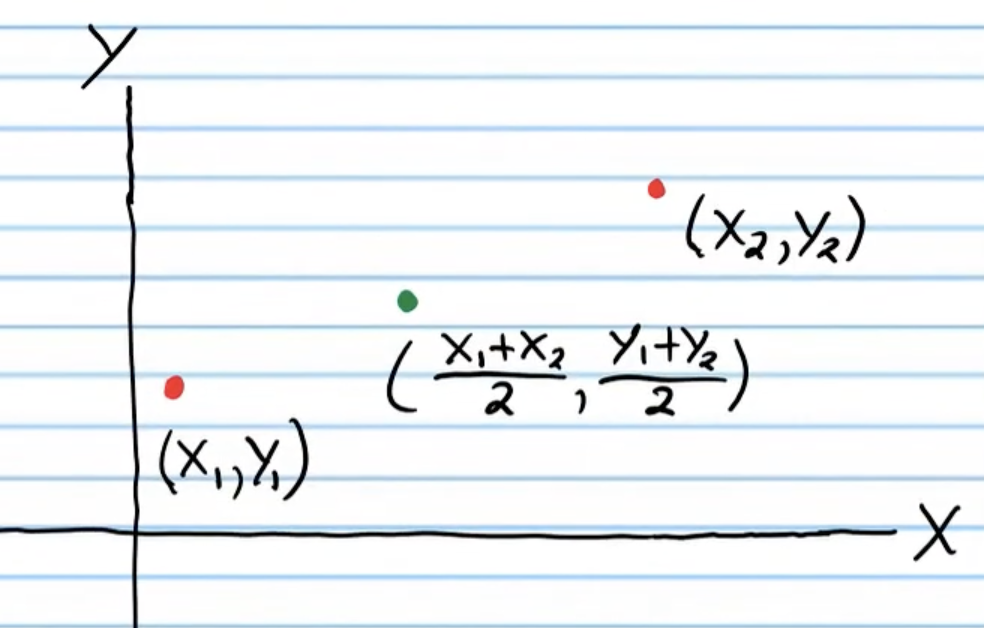 Y
(X₂, Y₂)
((X₁+X₂)/2, (Y₁+Y₂)/2)
(X₁, Y₁)
X